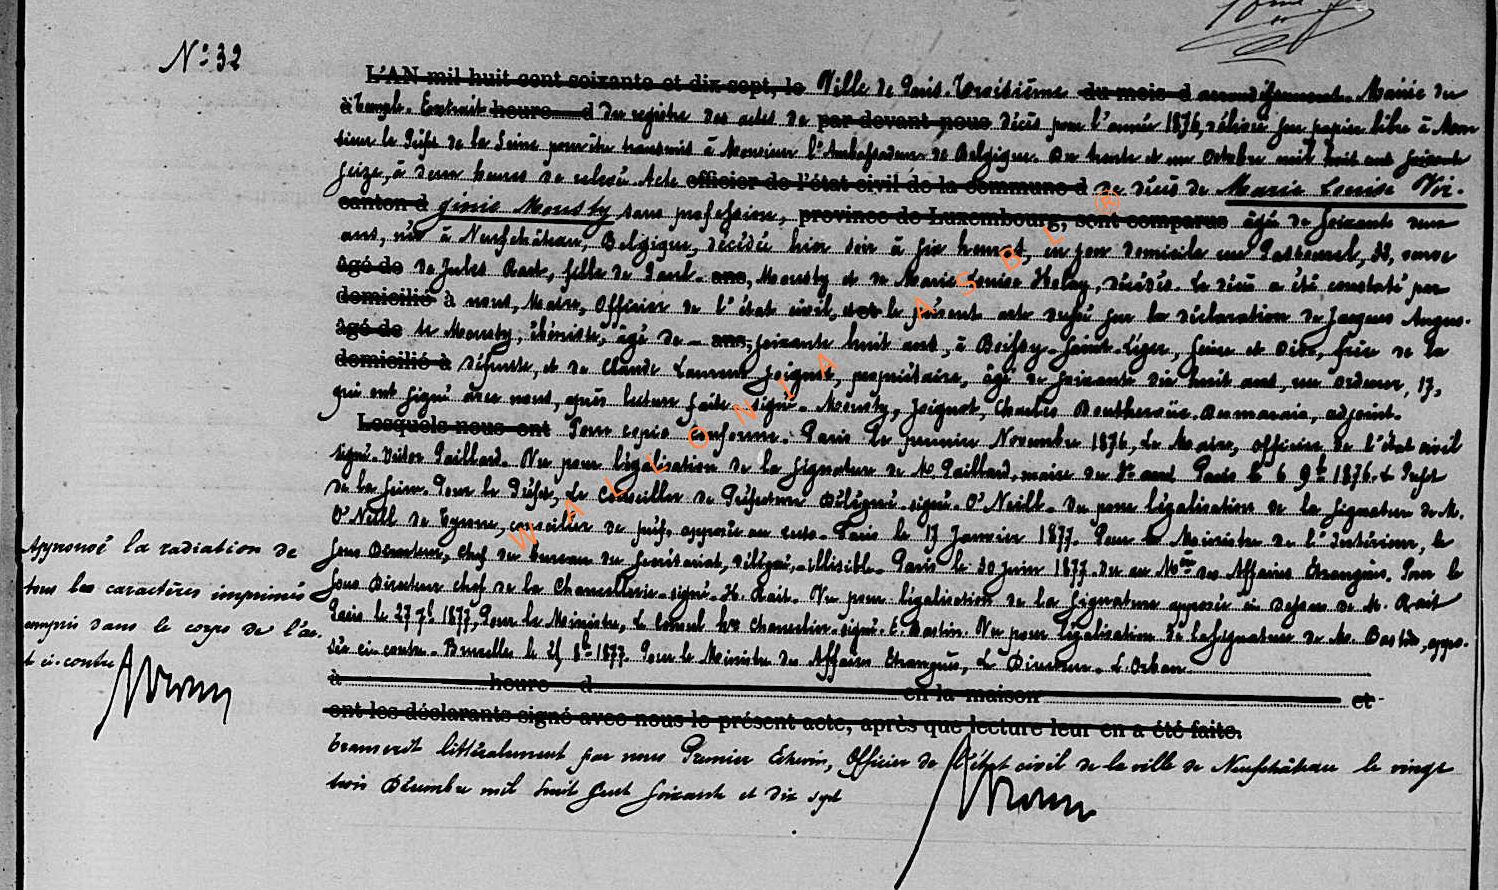 N° 32
L'AN mil huit cent soixante et dix sept, le Ville de Paris. Troisième du mois d arrondissement. Mairie du
à Temple. Extrait heure d du registre des actes de par devant nous décès pour l'année 1876, délivré sur papier libre à Mon
sieur le Préfet de la Seine pour être transmis à Monsieur l'Ambassadeur de Belgique. Du trente et un Octobre mil huit cent soixante
seize, à deux heures de relevée Acte officier de l'état civil de la commune d de décès de Marie Louise Vir-
canton d ginie Mousty sans profession, province de Luxembourg, sont comparus âgée de soixante deux
ans, née à Neufchâteau, Belgique, décédée hier soir à six heures, en son domicile rue Pastourel, 33, veuve
âgé de de Jules Raet, fille de Paul ans, Mousty et de Marie Louise , décédés. Le décès a été constaté par
domicilié à nous, Maire, Officier de l'état civil, et le présent acte dressé sur la déclaration de Jacques Augus-
âgé de te Mousty, ébéniste, âgé de ans, soixante huit ans, à Boissy-Saint-Léger, Seine et Oise, frère de la
domicilié à défunte, et de Claude Laurent Joignot, propriétaire, âgé de soixante dix huit ans, rue , 17,
qui ont signé avec nous, après lecture faite. signé. Mousty, Joignot, Charles Desmarais, adjoint.
Lesquels nous ont Pour copie conforme. Paris le premier Novembre 1876, Le Maire, officier de l'état civil
signé. Paillard. Vu pour légalisation de la signature de M. Paillard, maire du arrt Paris le 6 9bre 1876. Le Préfet
de la Seine. Pour le Préfet, Le Conseiller de Préfecture Délégué. signé. O'Neill. Vu pour légalisation de la signature de M.
O'Neill de Tyrone, conseiller de préf. apposée au recto. Paris le 17 Janvier 1877. Pour le Ministre de l'Intérieur, le
Sous Directeur, chef du bureau du secrétariat, délégué, illisible. Paris le 30 Juin 1877. Vu au Mère des Affaires Etrangères. Pour le
Sous Directeur chef de la Chancellerie. signé. H. Rait. Vu pour légalisation de la signature apposée ci dessus de M. Rait
Paris le 27 7bre 1877, Pour le Ministre, Le Consul Chancelier. signé. E. Bastin. Vu pour légalisation de la signature de M. Bastin, appo-
sée ci-contre. Bruxelles le 8bre 1877. Pour le Ministre des Affaires Etrangères, Le Directeur. L. Orban
à heure d en la maison et
ont les déclarants signé avec nous le présent acte, après que lecture leur en a été faite.
Transcrit littéralement par nous Premier Echevin, Officier de l'état civil de la ville de Neufchâteau le vingt
trois Décembre mil huit cent soixante et dix sept
Approuvé la radiation de
tous les caractères imprimés
compris dans le corps de l'ac
t ci-contre
WALLONIA ASBL ®